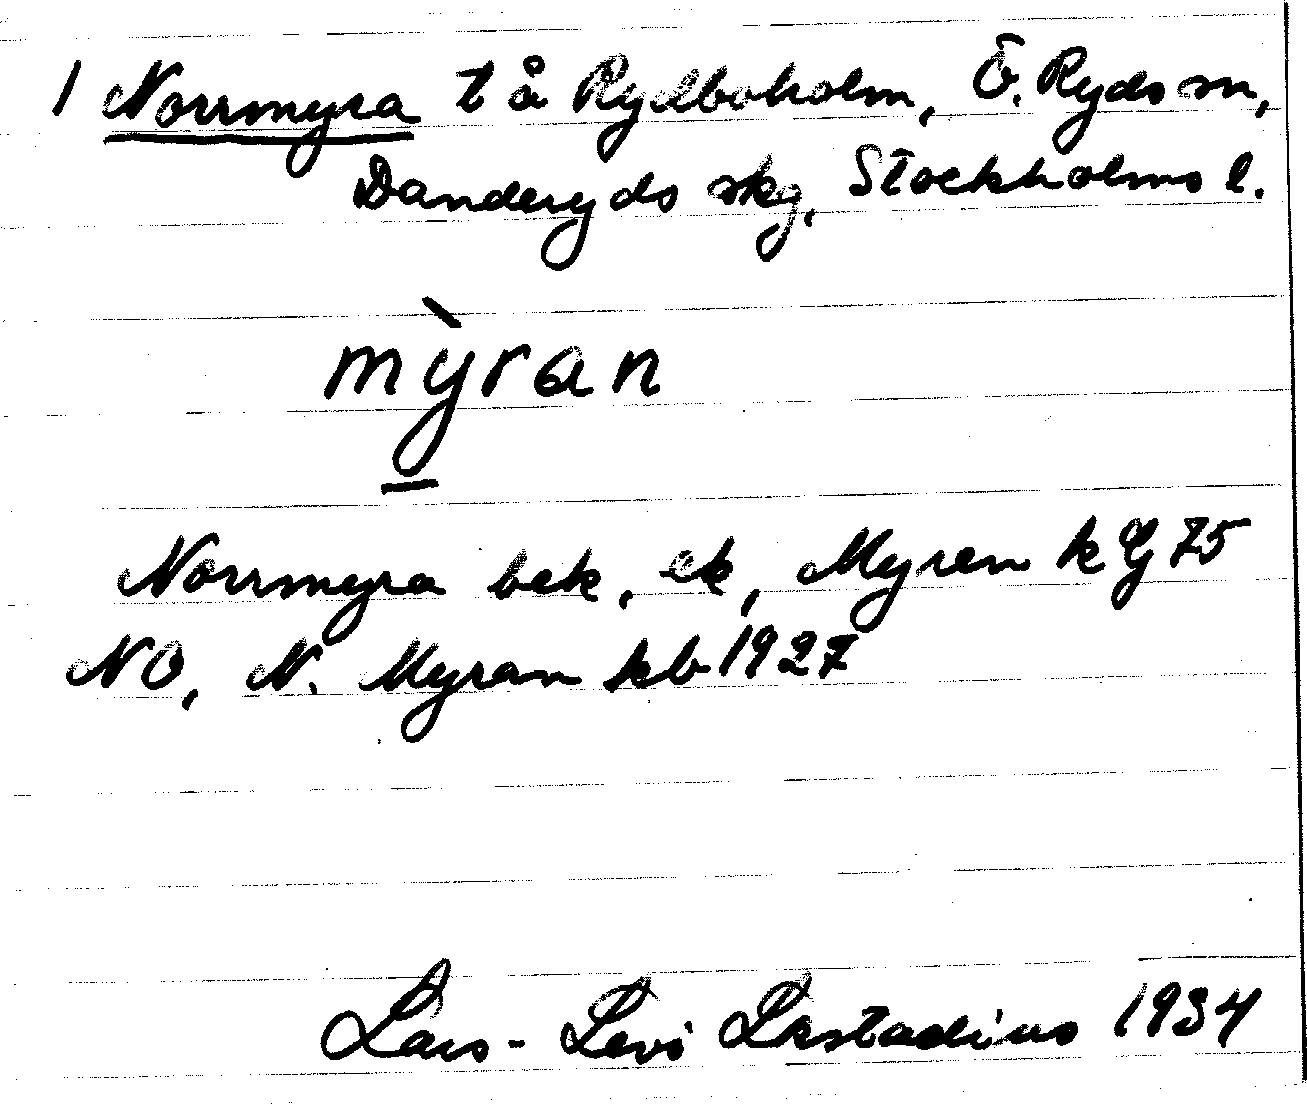 1 Norrmyra t å Rydboholm, Ö. Ryds sn,
Danderyds skg, Stockholms l.
mỳran
Norrmyra bek, ek, Myren k Gj 75
NO, N. Myran kb 1927
Lars-Levi Læstadius 1934